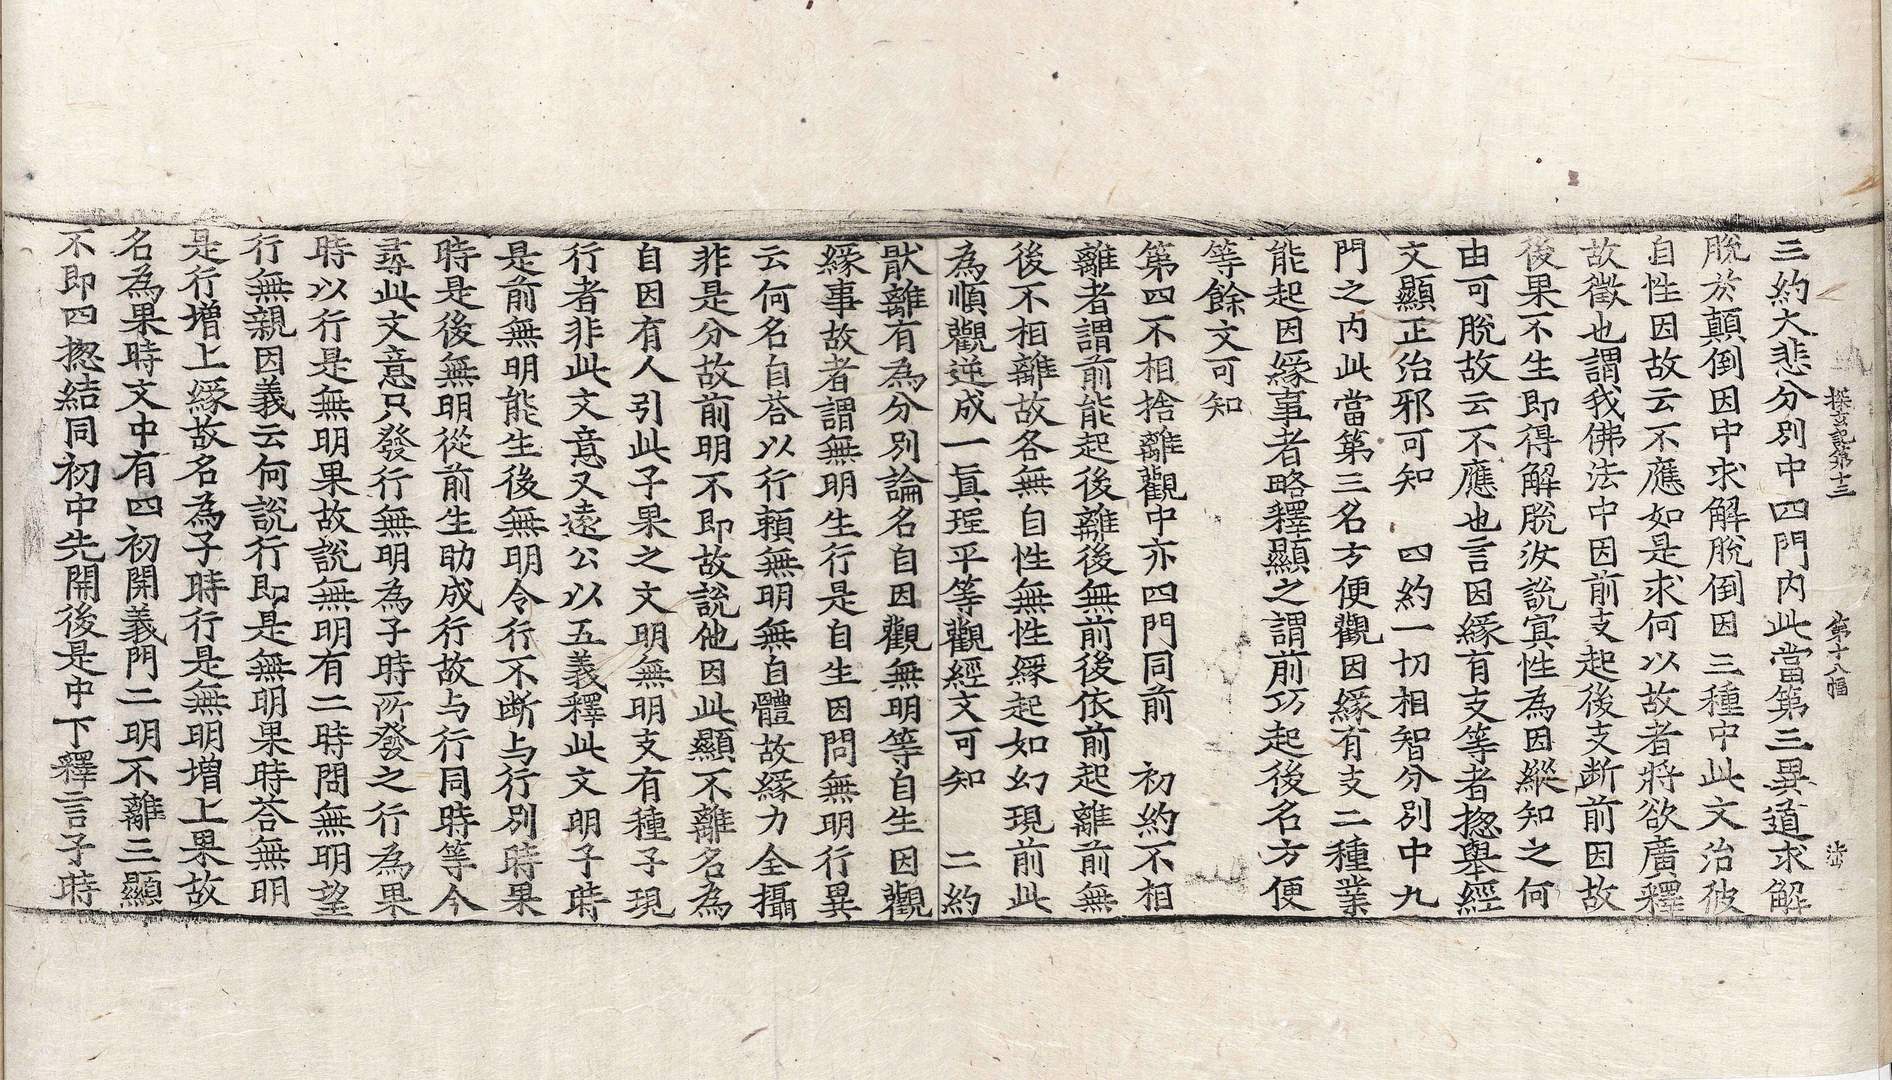 探玄記第十三 第十八幅
三約大悲分別中四門內此當第三異道求解
脫於顛倒因中求解脫倒因三種中此文治彼
自性因故云不應如是求何以故者將欲廣釋
故徵也謂我佛法中因前支起後支断前因故
後果不生即得解脫汝說冥性為因縱知之何
由可脫故云不應也言因緣有支等者揔舉經
文顯正治邪可知 四約一切相智分別中九
門之內此當第三名方便觀因緣有支二種業
能起因緣事者略釋顯之謂前巧起後名方便
等餘文可知
第四不相捨離觀中亦四門同前 初約不相
離者謂前能起後離後無前後依前起離前無
後不相離故各無自性無性緣起如幻現前此
為順觀逆成一眞理平等觀經文可知 二約
猒離有為分別論名自因觀無明等自生因觀
緣事故者謂無明生行是自生因問無明行異
云何名自荅以行賴無明無自體故緣力全攝
非是分故前明不即故說他因此顯不離名為
自因有人引此子果之文明無明支有種子現
行者非此文意又遠公以五義釋此文明子時
是前無明能生後無明令行不断与行別時果
時是後無明從前生助成行故与行同時等今
尋此文意只發行無明為子時所發之行為果
時以行是無明果故說無明有二時問無明望
行無親因義云何說行即是無明果時荅無明
是行增上緣故名為子時行是無明增上果故
名為果時文中有四初開義門二明不離三顯
不即四揔結同初中先開後是中下釋言子時